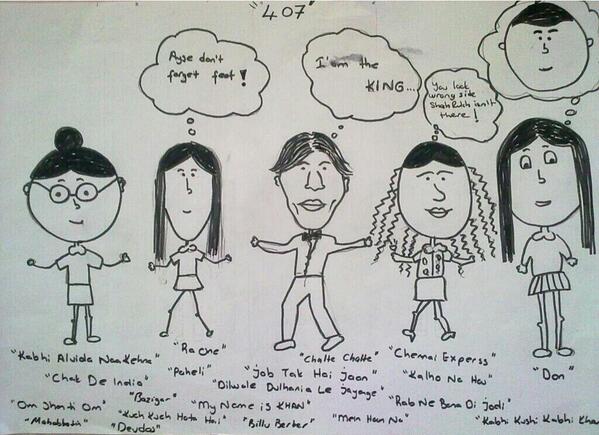 "407"
Ayşe don't
forget feet!
I'am the
KING....
You look
wrong side
Shah Rukh isn't
there!
"Kabhi Alvida Naa Kehna" "Ra One" "Chalte Chalte" "Chennai Experss" "Don"
"Chak De India" "Paheli" "Job Tak Hai Jaan" "Kalho Na Ho"
"Bazigar" "Dilwale Dulhania Le Jayage"
"Om Shanti Om" "Kuch Kuch Hota Hai" "My Name is KHAN" "Rab Ne Bana Di Jodi"
"Mohabbatin" "Devdas" "Billu Berber" "Mein Hon Na" "Kabhi Kushi Kabhi Kham"